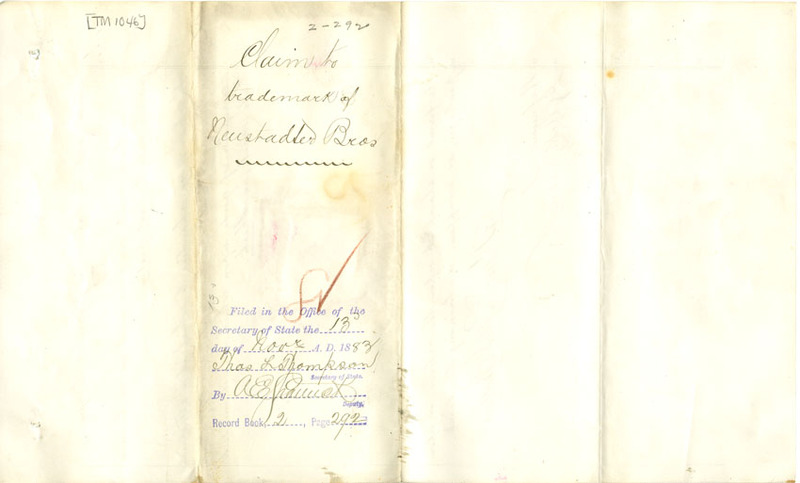 [TM 1046]
2-292
Claim to
trademark of
Neustadter Bros
13
Filed in the Office of the
Secretary of State the 13
day of Novr A. D. 1883
Thos L. Thompson
Secretary of State.
By A. E.
Deputy.
Record Book, 2, Page 292